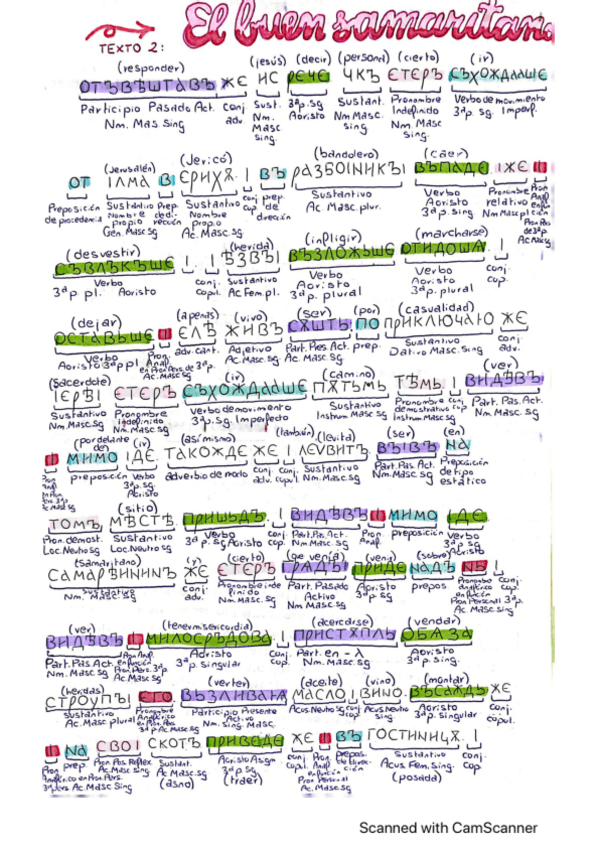 El buen samaritano
TEXTO 2:
(responder) (jesús) (decir) (persona) (cierto) (ir)
ОТЪВѢШТАВЪ ЖЄ ИС РЄЧЄ ЧКЪ ЄТЄРЪ СЪХОЖДААШЄ
Participio Pasado Act. conj. Sust. 3ªp.Sg Sustant. Pronombre Verbo de movimiento
Nm. Mas Sing adv. Nm. Aoristo Nm Masc. Indefinido 3ªp. sg. Imperf.
Masc sing Nm. Masc
sing Sing.
(Jerusalén) (Jericó) (bandolero) (caer)
ОТ ІЛМА В ЄРИХѪ. І ВЪ РАЗБОІНИКЪІ ВЪПАДЄ ІЖЄ І
Preposición Sustantivo Prep. Sustantivo conj prep. Sustantivo Verbo Pronombre
de procedencia Nombre propio Nombre Propio cop de dirección Ac. Masc. plur. Aoristo relativo
Gen. Masc Sg Ac. Masc. Sg 3ªp. Sing Nm Masc pl
(desvestir) (herida) (infligir) (marcharse)
СЪВЛѢКЪШЄ І. І ѢЗВЪІ ВЪЗЛОЖЬШЄ ОТИДОША. І
Verbo conj. Sustantivo Verbo Verbo conj.
3ªp pl. Aoristo copul. Ac Fem. pl. Aoristo Aoristo copul.
3ªp. plural 3ªp. plural
(dejar) (apenas) (vivo) (ser) (por) (casualidad)
ОСТАВЬШЄ І ЄЛѢ ЖИВЪ СѪШТЬ. ПО ПРИКЛЮЧАЮ ЖЄ
Verbo Pron. adv. cant. Adjetivo Part. Pres Act. prep. Sustantivo conj.
Aoristo 3ªp pl Ac. Masc. Sg Ac. Masc. Sg Dativo Masc. Sing adv.
(Sacerdote) (ir) (camino) (ver)
ІЄРѢІ ЄТЄРЪ СЪХОЖДААШЄ ПѪТЬМЬ ТѢМЬ. І ВИДѢВЪ
Sustantivo Pronombre verbo de movimiento Sustantivo Pronombre conj. Part. Pas. Act.
Nm. Masc. sg indefinido 3ªp. Sg. Imperfecto Instrum Masc. Sg demostrativo cop Nm. Masc. sg
Nm. Masc. sg Instrum Masc Sg
(por delante de) (ir) (así mismo) (también) (levita) (ser) (en)
І МИМО ІДЄ. ТАКОЖДЄ ЖЄ І ЛЄVВИТЪ. ВЪІВЪ НА
preposición verbo adverbio de modo conj. conj. Sustantivo Part. Pas. Act. Preposición
3ªp. sg. adv. copul Nm. Masc. Sg Nm. Masc sg de tipo
Aoristo estático
(sitio)
ТОМЪ МѢСТѢ ПРИШЬДЪ. І ВИДѢВЪ І МИМО ІДЄ
Pron. demost. Sustantivo Verbo conj. Part. Pas. Act. Pron. preposición Verbo
Loc. Neutro sg Loc. Neutro sg 3ªp. Sg Aoristo cop. Nm. Masc. Sg Anaf. 3ªp sg
(Samaritano) (y) (cierto) (que venía) (venir) (sobre) Aoristo
САМАРѢНИНЪ ЖЄ ЄТЄРЪ ГРѦДЪІ ПРИДЄ НАДЪ НЬ І
Sustantivo conj. Pronombre indefinido Part. Pasado Aoristo prepos. Pronombre conj.
Nm. Masc. sg adv. Nm. Masc. sg Activo 3ªp sg Anafórico cop
Nm Masc. Sg en función Pron Personal 3ªp
Ac Masc. Sing
(ver) (tener misericordia) (acercarse) (vendar)
ВИДѢВЪ І МИЛОСРЬДОВА І ПРИСТѪПЛЬ ОБѦЗА
Part. Pas. Act. Pron. Anaf. Aoristo conj. Part. en - λ Aoristo
Nm. Masc. Sg 3ªp. Singular cop. Nm. Masc. Sing 3ªp. Sing.
(heridas) (verter) (aceite) (vino) (montar)
СТРОУПЪІ ЄГО ВЪЗЛИВАѨ МАСЛО І ВИНО. ВЬСАЖДЬ ЖЄ
Sustantivo Pronombre Participio Presente Acus. Neutro sg conj. Acus. Neutro Aoristo conj.
Ac. Masc plural Anafórico Activo cop Sing 3ªp. Singular copul.
Nm. Sing. Masc.
І NА СВОІ СКОТЪ ПРИВЄДЄ ЖЄ І ВЪ ГОСТИНИЦѪ. І
Pron. prep. Pron. Pos. Reflex. Sustant. Aoristo Asigm. conj. Pron. prepos. Sustantivo conj.
Ac Masc sing Ac. Masc. Sg 3ªp Sg copul. Anaf. de dirección Acus. Fem. Sing. cop.
(asno) (traer) Ac Masc. Sg (posada)
Scanned with CamScanner